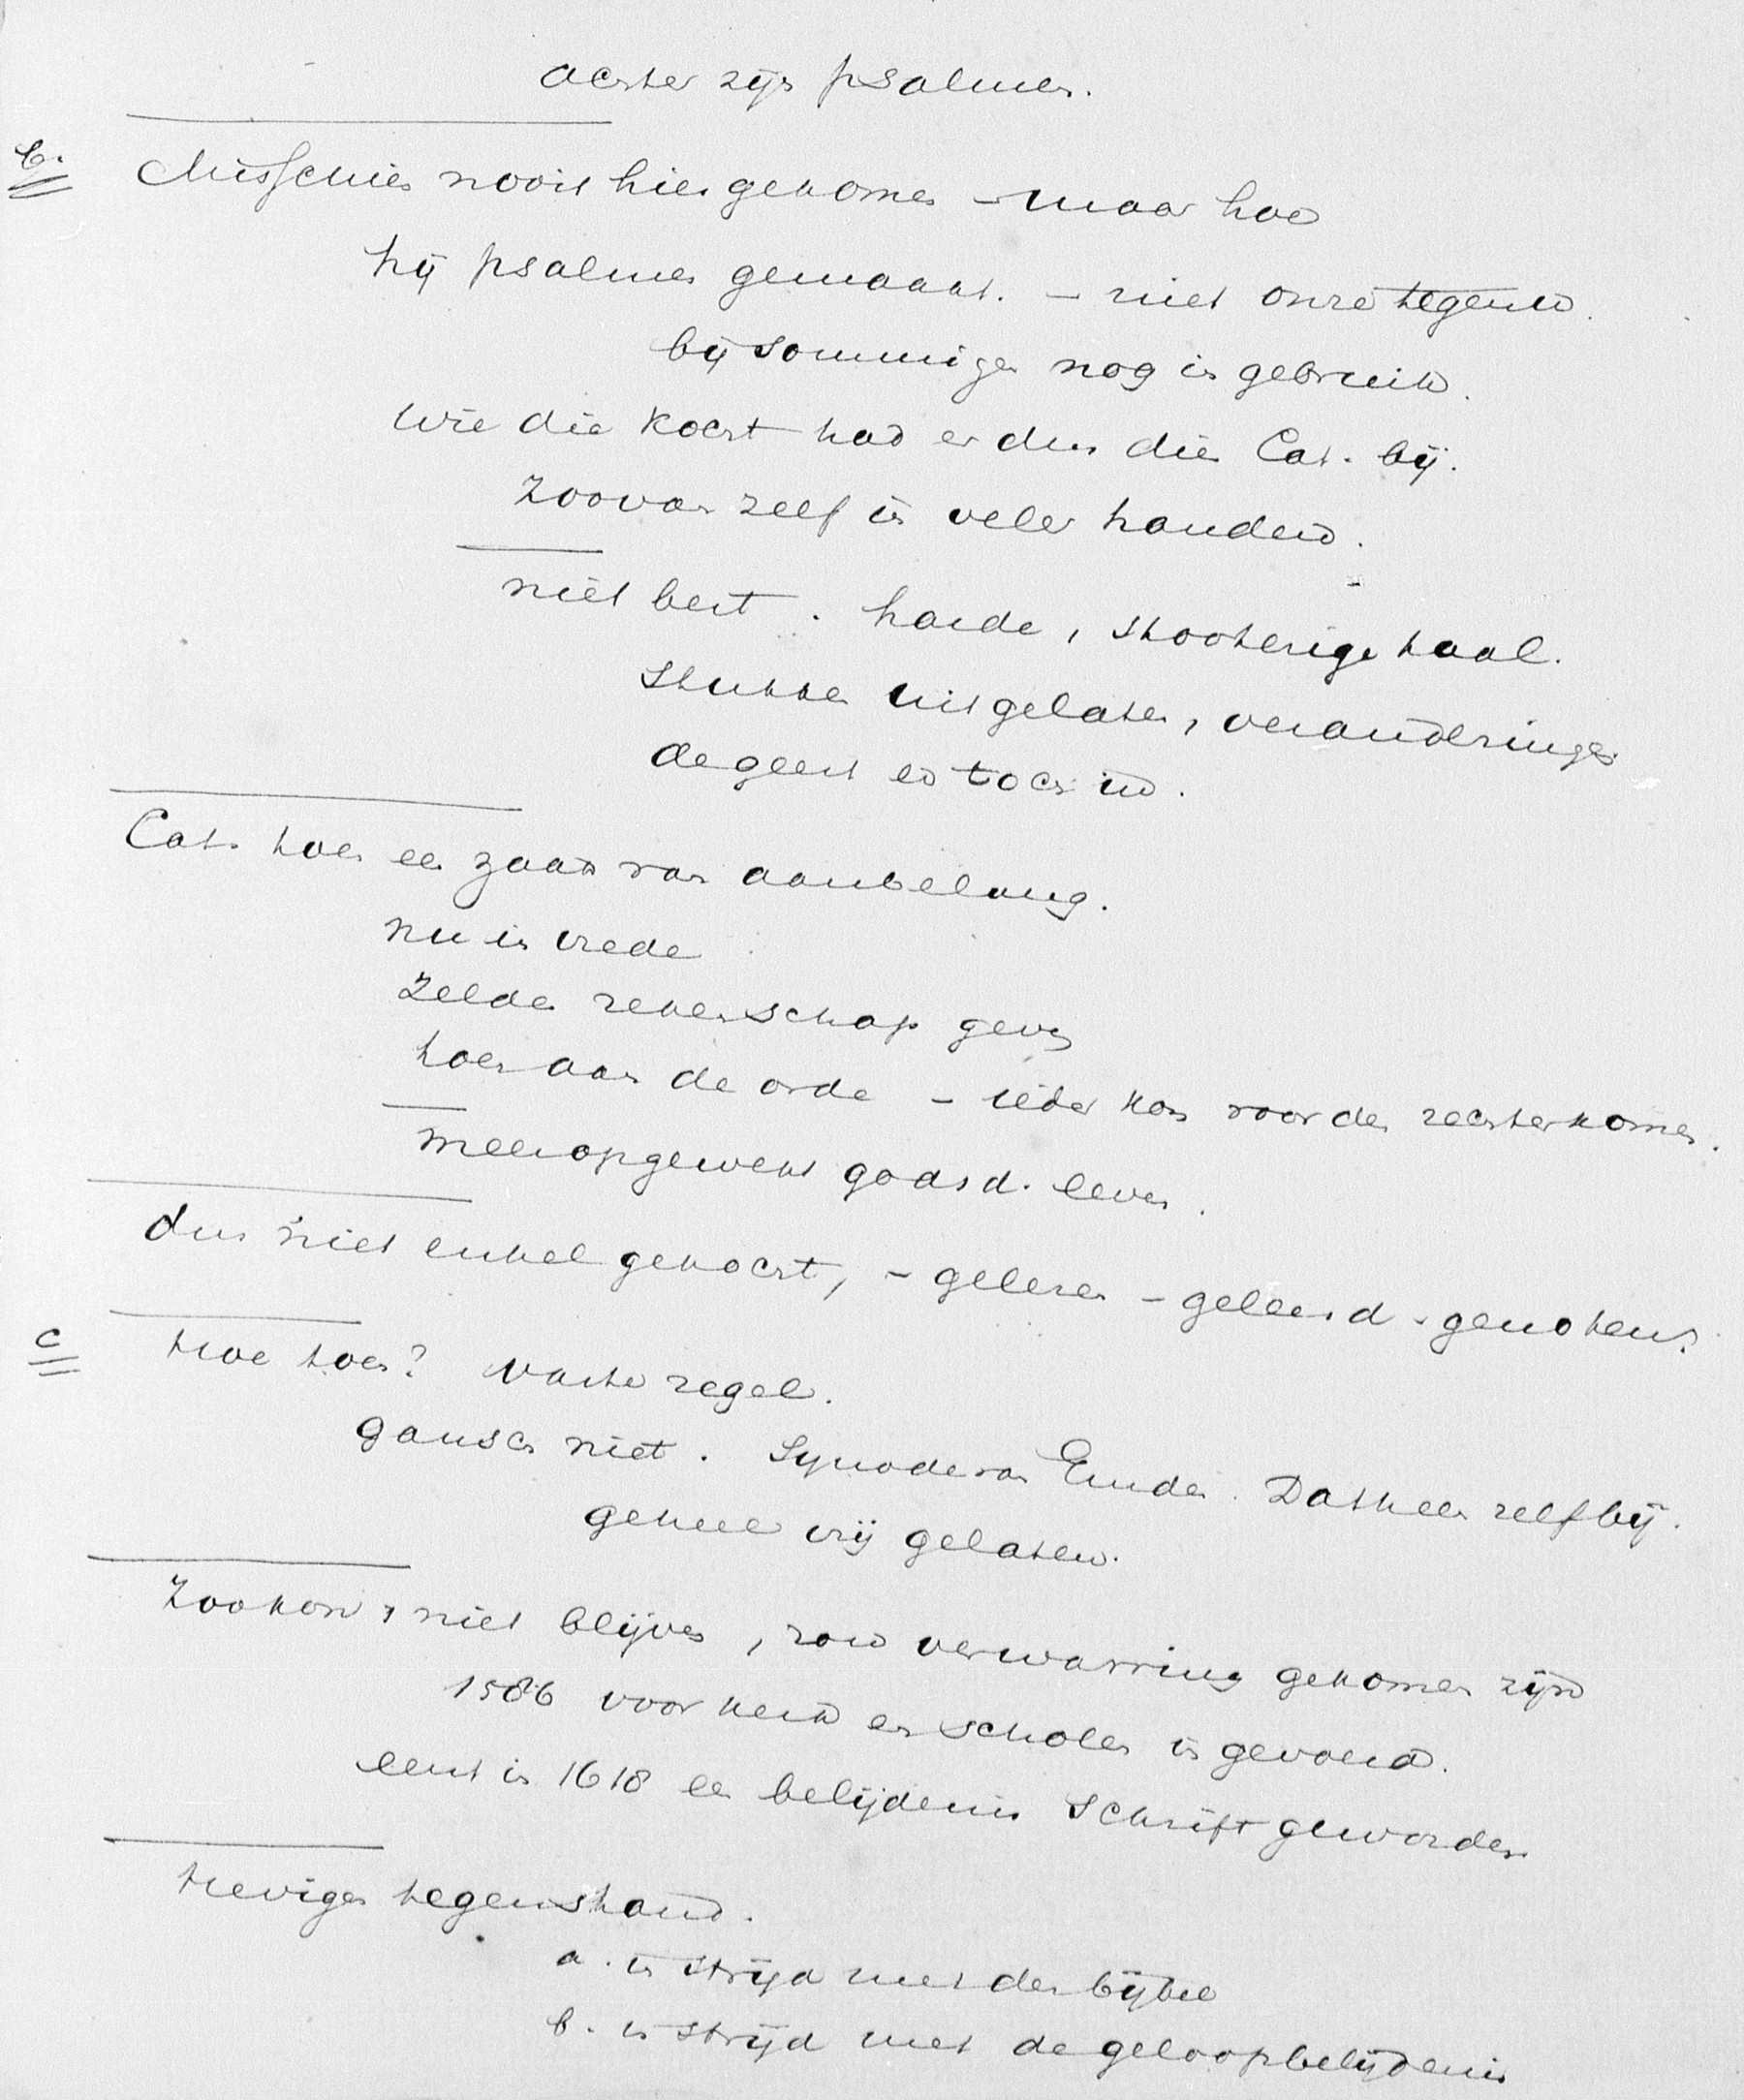 achter zijn psalmen.
b. Misschien nooit hier gekomen – maar had
hij psalmen gemaakt. – niet onze tegenw.
bij sommigen nog in gebruik.
Wie die kocht had er dus die Cat. bij.
Zoo van zelf in veler handen.
niet best. harde, stooterige taal.
Stukken uitgelaten, veranderingen
de geest er toch in.
Cat. toen een zaak van aanbelang.
nu is vrede
Zelden rekenschap geven
toen aan de orde – ieder kon voor den rechter komen.
meer opgewekt godsd. leven.
dus niet enkel gekocht, – gelezen – geleerd – genoten.
c Hoe toen? Vaste regel.
gansch niet. Synode van Emden. Datheen zelf bij.
geheel vrij gelaten.
Zoo kon 't niet blijven, zou verwarring gekomen zijn
1586 voor kerk en scholen ingevoerd.
eerst in 1618 een belijdenis Schrift geworden
Hevigen tegenstand.
a. in strijd met den bijbel
b. in strijd met de geloofsbelijdenis